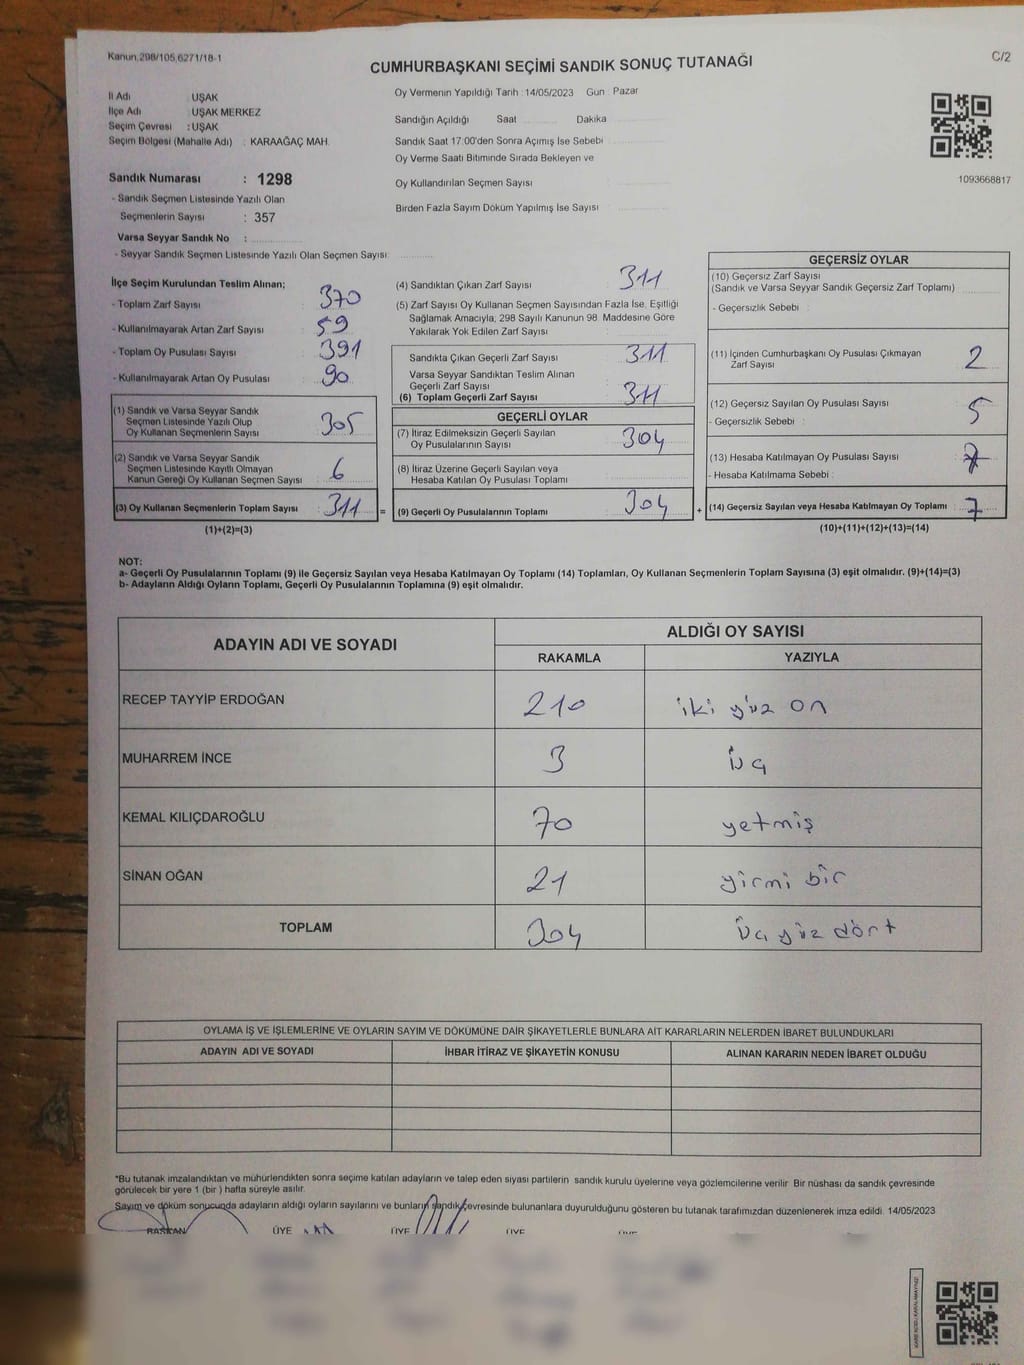 Kanun.298/105,6271/18-1
C/2
CUMHURBAŞKANI SEÇİMİ SANDIK SONUÇ TUTANAĞI
İl Adı : UŞAK
İlçe Adı : UŞAK MERKEZ
Seçim Çevresi : UŞAK
Seçim Bölgesi (Mahalle Adı) : KARAAĞAÇ MAH.
Sandık Numarası : 1298
- Sandık Seçmen Listesinde Yazılı Olan
Seçmenlerin Sayısı : 357
Varsa Seyyar Sandık No :
- Seyyar Sandık Seçmen Listesinde Yazılı Olan Seçmen Sayısı:
Oy Vermenin Yapıldığı Tarih : 14/05/2023 Gün : Pazar
Sandığın Açıldığı Saat Dakika
Sandık Saat 17:00'den Sonra Açımış İse Sebebi
Oy Verme Saati Bitiminde Sırada Bekleyen ve
Oy Kullandırılan Seçmen Sayısı
Birden Fazla Sayım Döküm Yapılmış İse Sayısı
1093668817
İlçe Seçim Kurulundan Teslim Alınan;
- Toplam Zarf Sayısı 370
- Kullanılmayarak Artan Zarf Sayısı 59
- Toplam Oy Pusulası Sayısı 391
- Kullanılmayarak Artan Oy Pusulası 90
(1) Sandık ve Varsa Seyyar Sandık
Seçmen Listesinde Yazılı Olup
Oy Kullanan Seçmenlerin Sayısı 305
(2) Sandık ve Varsa Seyyar Sandık
Seçmen Listesinde Kayıtlı Olmayan
Kanun Gereği Oy Kullanan Seçmen Sayısı 6
(3) Oy Kullanan Seçmenlerin Toplam Sayısı 311 =
(1)+(2)=(3)
(4) Sandıktan Çıkan Zarf Sayısı 311
(5) Zarf Sayısı Oy Kullanan Seçmen Sayısından Fazla İse, Eşitliği
Sağlamak Amacıyla, 298 Sayılı Kanunun 98. Maddesine Göre
Yakılarak Yok Edilen Zarf Sayısı
Sandıkta Çıkan Geçerli Zarf Sayısı 311
Varsa Seyyar Sandıktan Teslim Alınan
Geçerli Zarf Sayısı
(6) Toplam Geçerli Zarf Sayısı 311
GEÇERLİ OYLAR
(7) İtiraz Edilmeksizin Geçerli Sayılan
Oy Pusulalarının Sayısı 304
(8) İtiraz Üzerine Geçerli Sayılan veya
Hesaba Katılan Oy Pusulası Toplamı
(9) Geçerli Oy Pusulalarının Toplamı 304 +
GEÇERSİZ OYLAR
(10) Geçersiz Zarf Sayısı
(Sandık ve Varsa Seyyar Sandık Geçersiz Zarf Toplamı)
- Geçersizlik Sebebi :
(11) İçinden Cumhurbaşkanı Oy Pusulası Çıkmayan
Zarf Sayısı 2
(12) Geçersiz Sayılan Oy Pusulası Sayısı 5
- Geçersizlik Sebebi :
(13) Hesaba Katılmayan Oy Pusulası Sayısı
- Hesaba Katılmama Sebebi :
(14) Geçersiz Sayılan veya Hesaba Katılmayan Oy Toplamı : 7
(10)+(11)+(12)+(13)=(14)
NOT:
a- Geçerli Oy Pusulalarının Toplamı (9) ile Geçersiz Sayılan veya Hesaba Katılmayan Oy Toplamı (14) Toplamları, Oy Kullanan Seçmenlerin Toplam Sayısına (3) eşit olmalıdır. (9)+(14)=(3)
b- Adayların Aldığı Oyların Toplamı, Geçerli Oy Pusulalarının Toplamına (9) eşit olmalıdır.
ADAYIN ADI VE SOYADI
ALDIĞI OY SAYISI
RAKAMLA YAZIYLA
RECEP TAYYİP ERDOĞAN 210 iki yüz on
MUHARREM İNCE 3 üç
KEMAL KILIÇDAROĞLU 70 yetmiş
SİNAN OĞAN 21 yirmi bir
TOPLAM 304 Üç yüz dört
OYLAMA İŞ VE İŞLEMLERİNE VE OYLARIN SAYIM VE DÖKÜMÜNE DAİR ŞİKAYETLERLE BUNLARA AİT KARARLARIN NELERDEN İBARET BULUNDUKLARI
ADAYIN ADI VE SOYADI İHBAR İTİRAZ VE ŞİKAYETİN KONUSU ALINAN KARARIN NEDEN İBARET OLDUĞU
*Bu tutanak imzalandıktan ve mühürlendikten sonra seçime katılan adayların ve talep eden siyasi partilerin sandık kurulu üyelerine veya gözlemcilerine verilir. Bir nüshası da sandık çevresinde
görülecek bir yere 1 (bir) hafta süreyle asılır.
Sayım ve döküm sonucunda adayların aldığı oyların sayılarını ve bunların sandık çevresinde bulunanlara duyurulduğunu gösteren bu tutanak tarafımızdan düzenlenerek imza edildi. 14/05/2023
BAŞKAN ÜYE ÜYE ÜYE